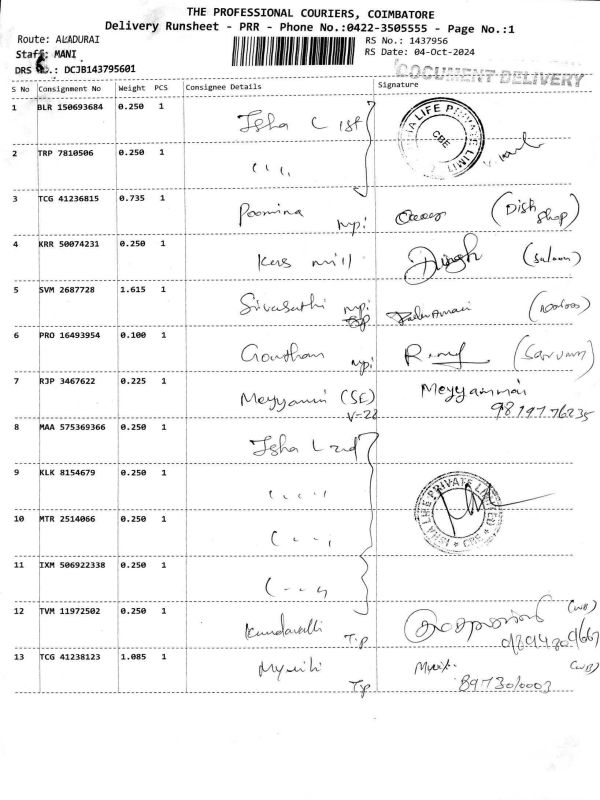 THE PROFESSIONAL COURIERS, COIMBATORE
Delivery Runsheet - PRR - Phone No.:0422-3505555 - Page No.:1
Route: ALADURAI
RS No.: 1437956
Staff: MANI
RS Date: 04-Oct-2024
DRS No.: DCJB143795601
DOCUMENT DELIVERY
S No Consignment No Weight PCS Consignee Details Signature
1 BLR 150693684 0.250 1 Isha L 1st
ISHA LIFE PRIVATE LIMITED CBE
2 TRP 7810506 0.250 1 " "
3 TCG 41236815 0.735 1 Poornima (Dish Shop)
4 KRR 50074231 0.250 1 mill (Saloon)
5 SVM 2687728 1.615 1 Sivasathi
6 PRO 16493954 0.100 1 Goutham
7 RJP 3467622 0.225 1 (SE) V-22 Meyyammai
8 MAA 575369366 0.250 1 Isha L 2nd
9 KLK 8154679 0.250 1 " "
ISHA LIFE PRIVATE LIMITED CBE
10 MTR 2514066 0.250 1 " "
11 IXM 506922338 0.250 1 " "
12 TVM 11972502 0.250 1 Kundavalli T.p (WB)
13 TCG 41238123 1.085 1 T.p (WB)
8973010003